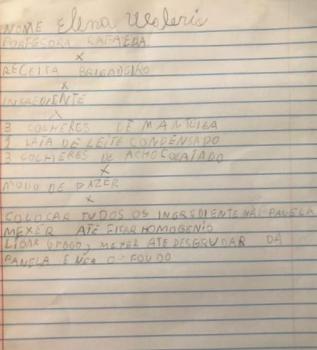 NOME Elena Valeria
PORFESORA RAFAELA
x
RECEITA BRIGADEIRO
x
INGREDIENTE
x
3 COLHERES DE MANTEIGA
1 LATA DE LEITE CONDENSADO
3 COLHERES DE ACHOCOLATADO
x
MODO DE FAZER
x
COLOCAR TUDOS OS INGREDIENTE NA PANELA
MEXER ATÉ FICAR HOMOGENIO
LIGAR O FOGO, MEXER ATE DESGRUDAR DA
PANELA E O FOUDO